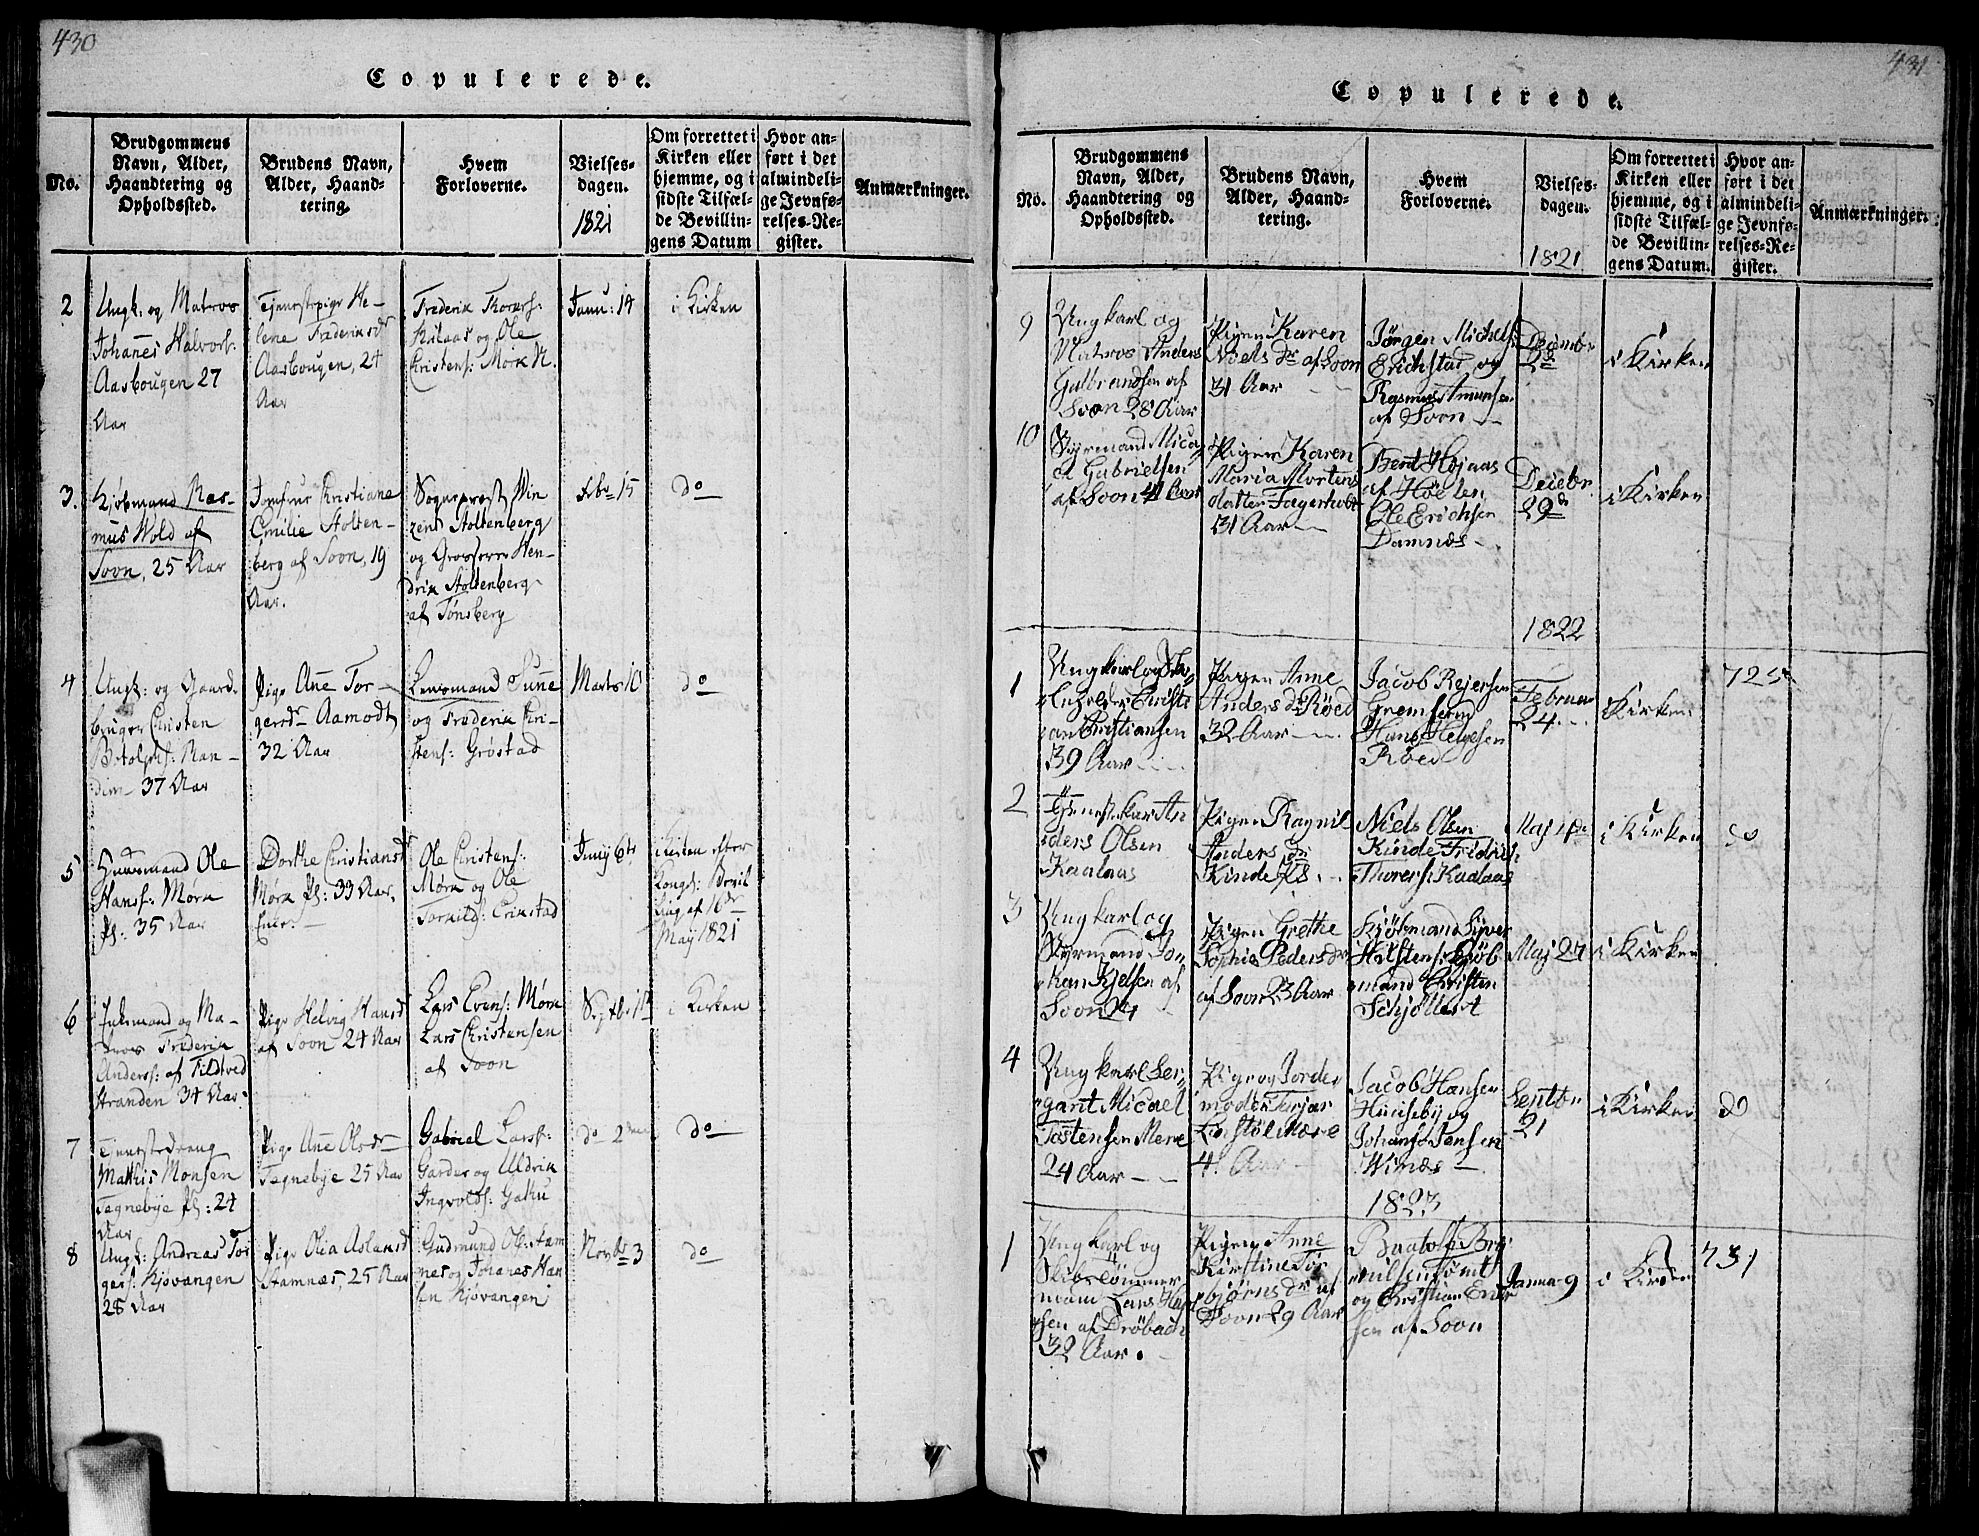 430
Copulerede.
No.
Brudgommens
Navn, Alder,
Haandtering og
Opholdssted.
Brudens Navn,
Alder, Haand-
tering.
Hvem
Forloverne.
Vielses-
dagen.
1821
Om forrettet i
Kirken eller
hjemme, og i
sidste Tilfæl-
de Bevillin-
gens Datum
Hvor an-
ført i det
almindeli-
ge Jevnfø-
relses-Re-
gister.
Anmærkninger.
2
Ungk: og Matros
Johanes Halvors:
Aasbougen 27
Aar
Tjenestepige He-
lene Frederiksdr
Aasbougen, 24
Aar
Frederik Thorers:
og Ole
Christens: Mörk N.
Janu: 14
i Kirken
3.
Kjöbmand Ras-
mus Wold af
Soon, 25 Aar
Jomfrue Christiane
Emilie Stolten-
berg af Soon, 19
Aar.
Sogneprest Win
zent Stoltenberg
og Grosserer Hen-
drik Stoltenberg
af Tønsberg
15
do
4
Ungk: og Gaard-
bruger Christen
37 Aar
Pige Ane Tor-
gersdr Aamodt
32 Aar
Lensmand Sunne
og Frederik Chri-
stens: Gröstad
Marts 10
do
5
Huusmand Ole
Hans: Mörk
Pl: 35 Aar
Dorthe Christiansd
Mörk Pl: 33 Aar,
Enke. -
Ole Christens:
Mörk og Ole
Juny 6te
i Kirken efter
Kongl: Bevil
ling af 10de
May 1821
6
Enkemand og Ma-
tros Frederik
Anders: af Fildtved
Stranden 34 Aar.
Pige Helvig Hansd
af Soon 24 Aar
Lars Evens: Mörk
Lars Christensen
af Soon
Septbr 1ste
i Kirken
7
Tjenestedreng
Mathis Monsen
Tegnebye Pl: 24
Aar
Pige Ane Olsdr
Tegnebye 25 Aar
Gabriel Lars:
Garder og Uldrik
Ingvolds:
do 2
do
8
Ungk: Andreas Tor
gers: Kjövangen
28 Aar
Pige Olia Aslansd
Stamnæs, 25 Aar
Gudmund Ols: Stam
næs og Johanes Han
sen Kjövangen
Novbr 3
do
431
Copulerede.
No.
Brudgommens
Navn, Alder,
Haandtering og
Opholdssted.
Brudens Navn,
Alder, Haand-
tering.
Hvem
Forloverne.
Vielses-
dagen.
1821
Om forrettet i
Kirken eller
hjemme, og i
sidste Tilfæl-
de Bevillin-
gens Datum.
Hvor an-
ført i det
almindeli-
ge Jevnfø-
relses-Re-
gister.
Anmærkninger.
9
Ungkarl og
Matros Anders
Gulbrandsen af
Soon 28 Aar
Pigen Karen
Niels Dr af Soon
31 Aar
Jørgen Michels:
Erichstad og
Rasmus Amunsen
af Soon
Decembr
2
i Kirken
10
Styrmand Mica-
el Gabrielsen
af Soon 41 Aar
Pigen Karen
Maria Mortens
datter Fagerholt
31 Aar
Bent Højaas
af Høelen
Ole Erichsen
Damnæs
Decebr.
29
i Kirken
1822
1
Ungkarl og
Christi
an Christiansen
39 Aar
Pigen Anne
Anders dr Røed
32 Aar
Jacob Rejersen
Grimsern
Hans Helgesen
Røed
Februar
24
i Kirken
725
2
Tjenestekar An
ders Olsen
Kaalaas
Pigen Ragnil
Anders dr
Kinde Pls
Niels Olsen
Kinde Fridrich
Thorers: Kaalaas
Maj
i Kirken
do
3
Ungkarl og
Styrmand Jo-
han Kjelsen af
Soon 24
Pigen Grethe
Sophie Peders dr
af Soon 23 Aar
Kjøbmand Syver
Hilstens: Kjøb
mand Christen
Schjøllest
Maj 27
i Kirken
4
Ungkarl Ser-
gant Micael
Tostensen Mere
24 Aar
Pige og Jorde
moder Torjær
4. Aar
Jacob Hansen
Huuseby og
Johans Jensen
Winæs
Septbr
21
i Kirken
do
1823
1
Ungkarl og
Skibstømmer
mand Lars Han
sen af Drøbach
32 Aar.
Pigen Anne
Kirstine Tor
bjørns dr af
Soon 29 Aar
og Christian
sen af Soon
Janua 9
i Kirken
731